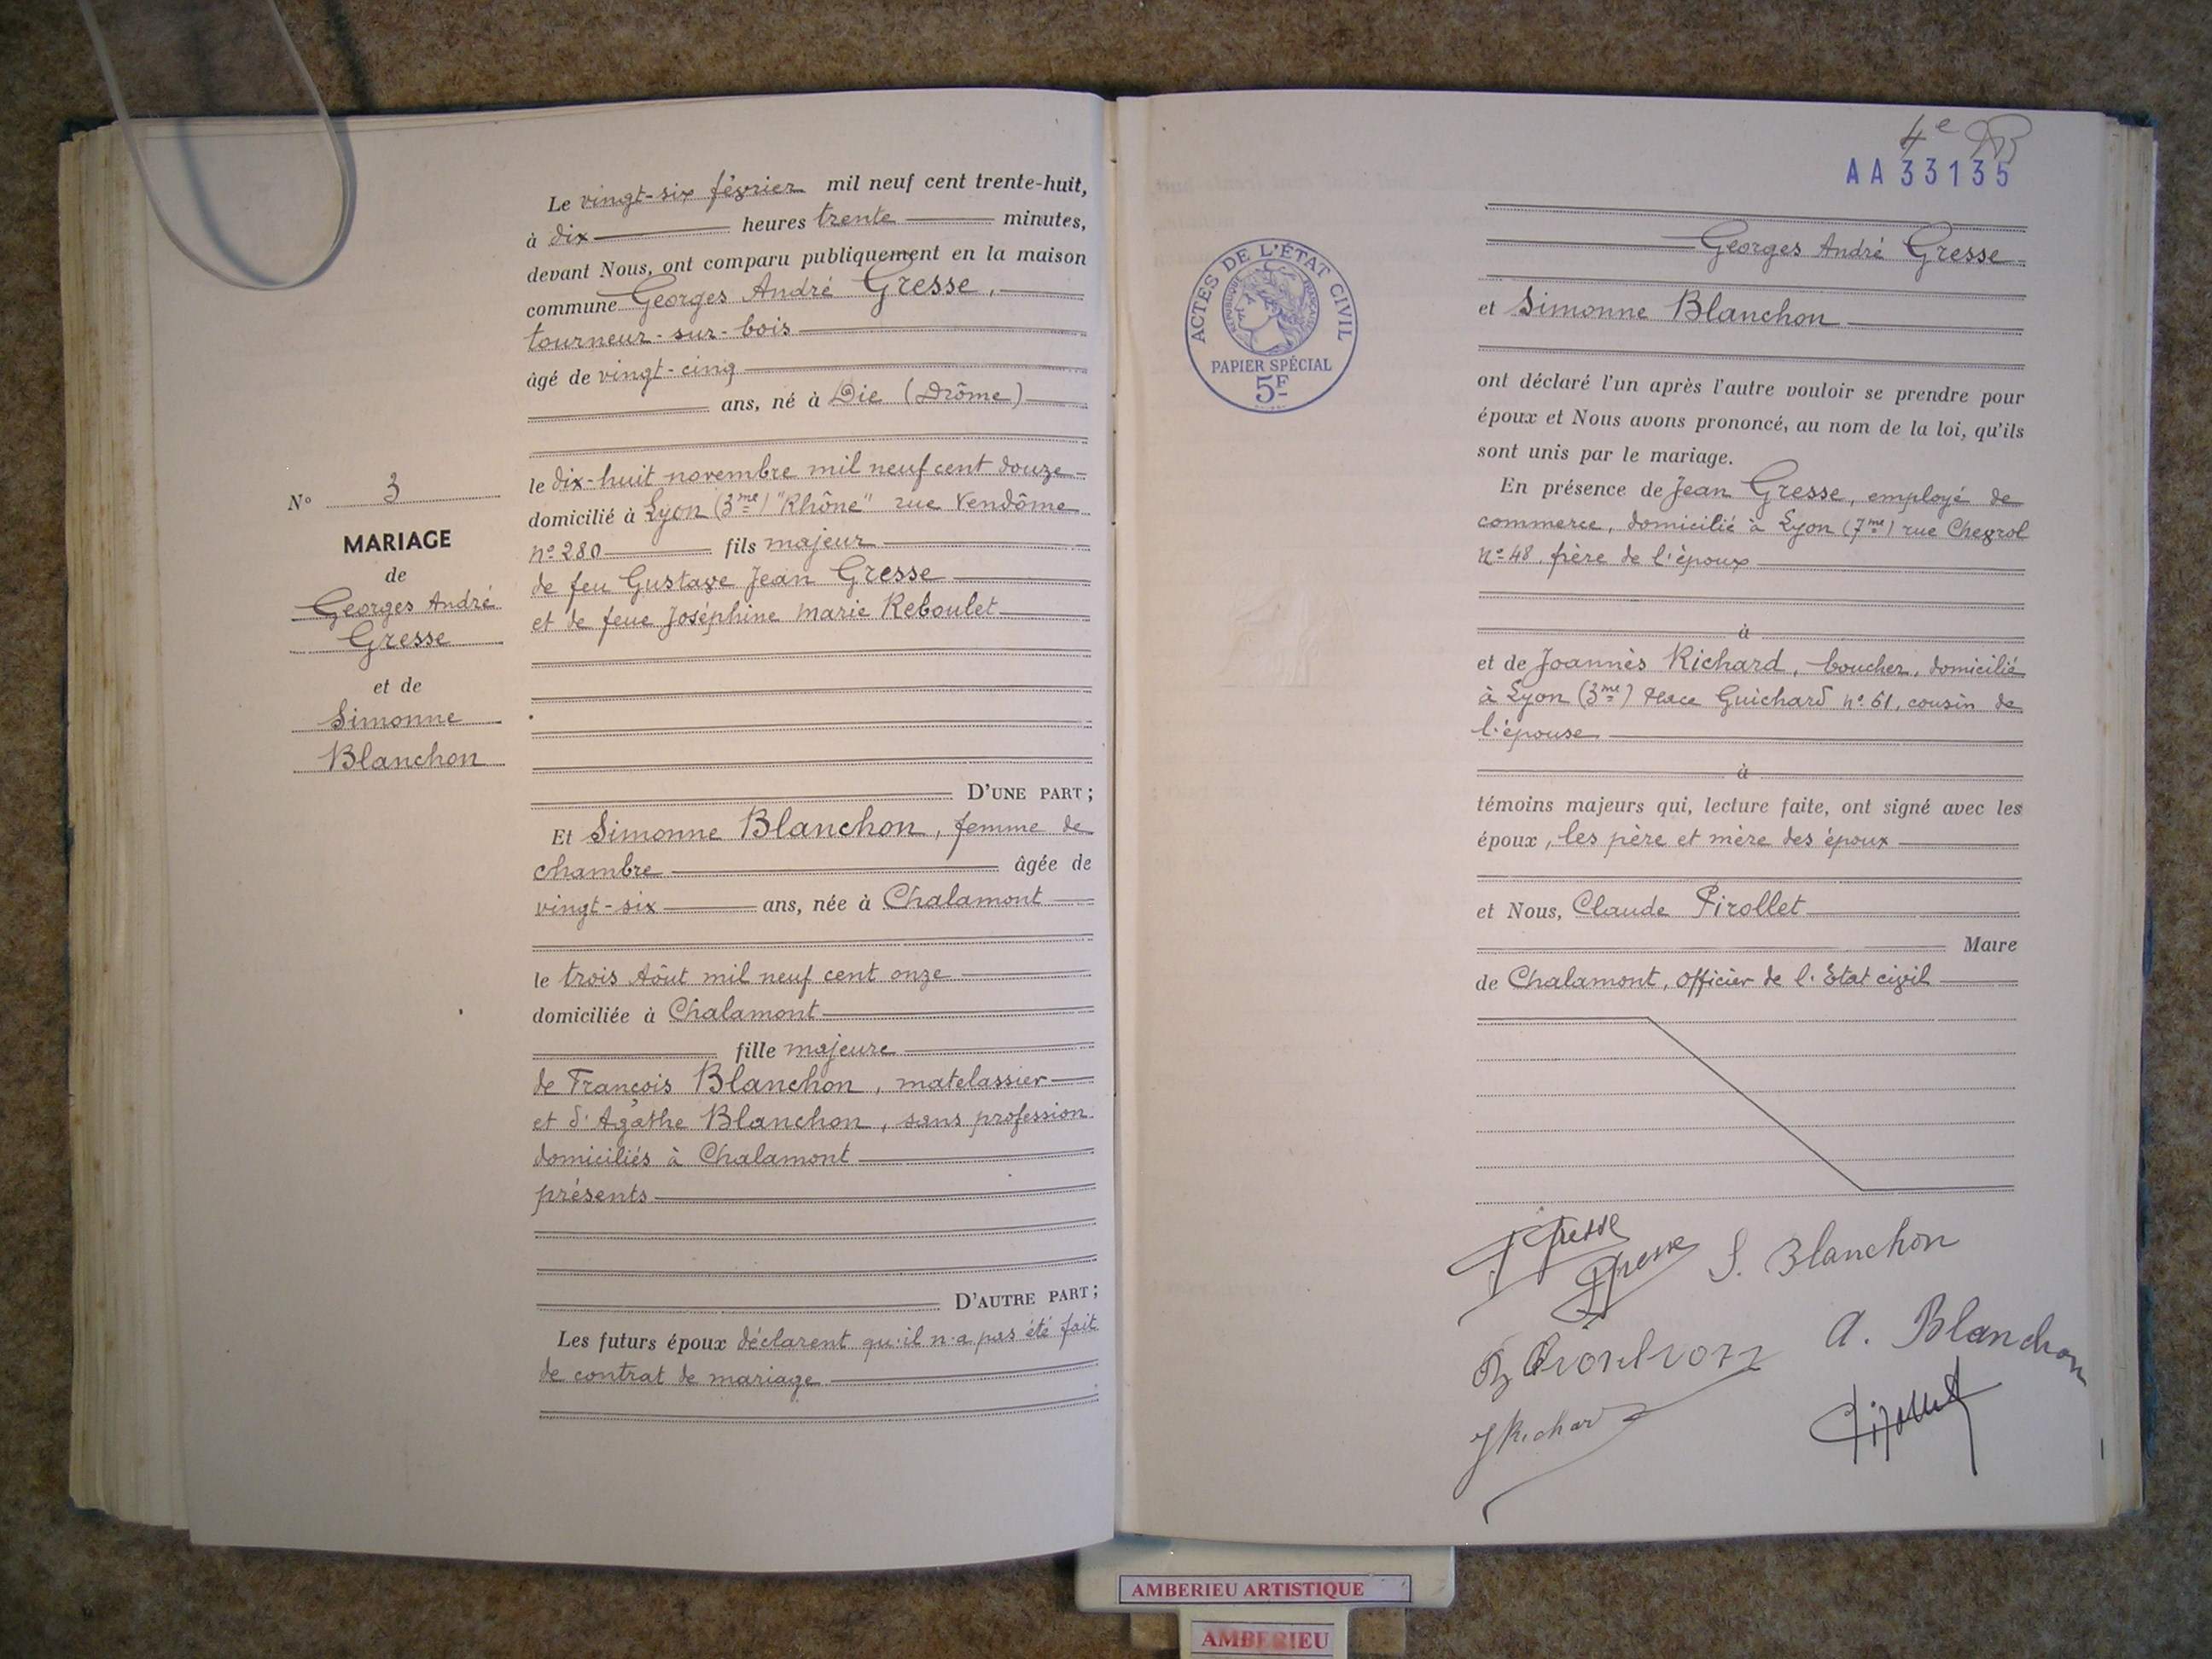 N° 3
MARIAGE
de
Georges André
Gresse
et de
Simonne
Blanchon
Le vingt-six février mil neuf cent trente-huit,
à dix heures trente minutes,
devant Nous, ont comparu publiquement en la maison
commune Georges André Gresse,
tourneur-sur-bois
âgé de vingt-cinq
ans, né à Die (Drôme)
le dix-huit novembre mil neuf cent douze
domicilié à Lyon (3me) "Rhône" rue Vendôme
n° 280 fils majeur
de feu Gustave Jean Gresse
et de feue Joséphine Marie Reboulet
D'UNE PART ;
Et Simonne Blanchon, femme de
chambre âgée de
vingt-six ans, née à Chalamont
le trois Aôut mil neuf cent onze
domiciliée à Chalamont
fille majeure
de François Blanchon, matelassier
et d'Agathe Blanchon, sans profession
domiciliés à Chalamont
présents
D'AUTRE PART ;
Les futurs époux déclarent qu'il n'a pas été fait
de contrat de mariage
4e
AA33135
ACTES DE L'ÉTAT CIVIL
RÉPUBLIQUE FRANÇAISE
PAPIER SPÉCIAL
5F
Georges André Gresse
et Simonne Blanchon
ont déclaré l'un après l'autre vouloir se prendre pour
époux et Nous avons prononcé, au nom de la loi, qu'ils
sont unis par le mariage.
En présence de Jean Gresse, employé de
commerce, domicilié à Lyon (7me) rue Chevrol
n° 48, frère de l'époux
à
et de Joannès Richard, boucher, domicilié
à Lyon (3me) Place Guichard n° 61, cousin de
l'épouse
à
témoins majeurs qui, lecture faite, ont signé avec les
époux, les père et mère des époux
et Nous, Claude Pirollet
Maire
de Chalamont, Officier de l'Etat civil
Gresse
Gresse
S. Blanchon
A. Blanchon
J Richard
Pirollet
AMBERIEU ARTISTIQUE
AMBERIEU